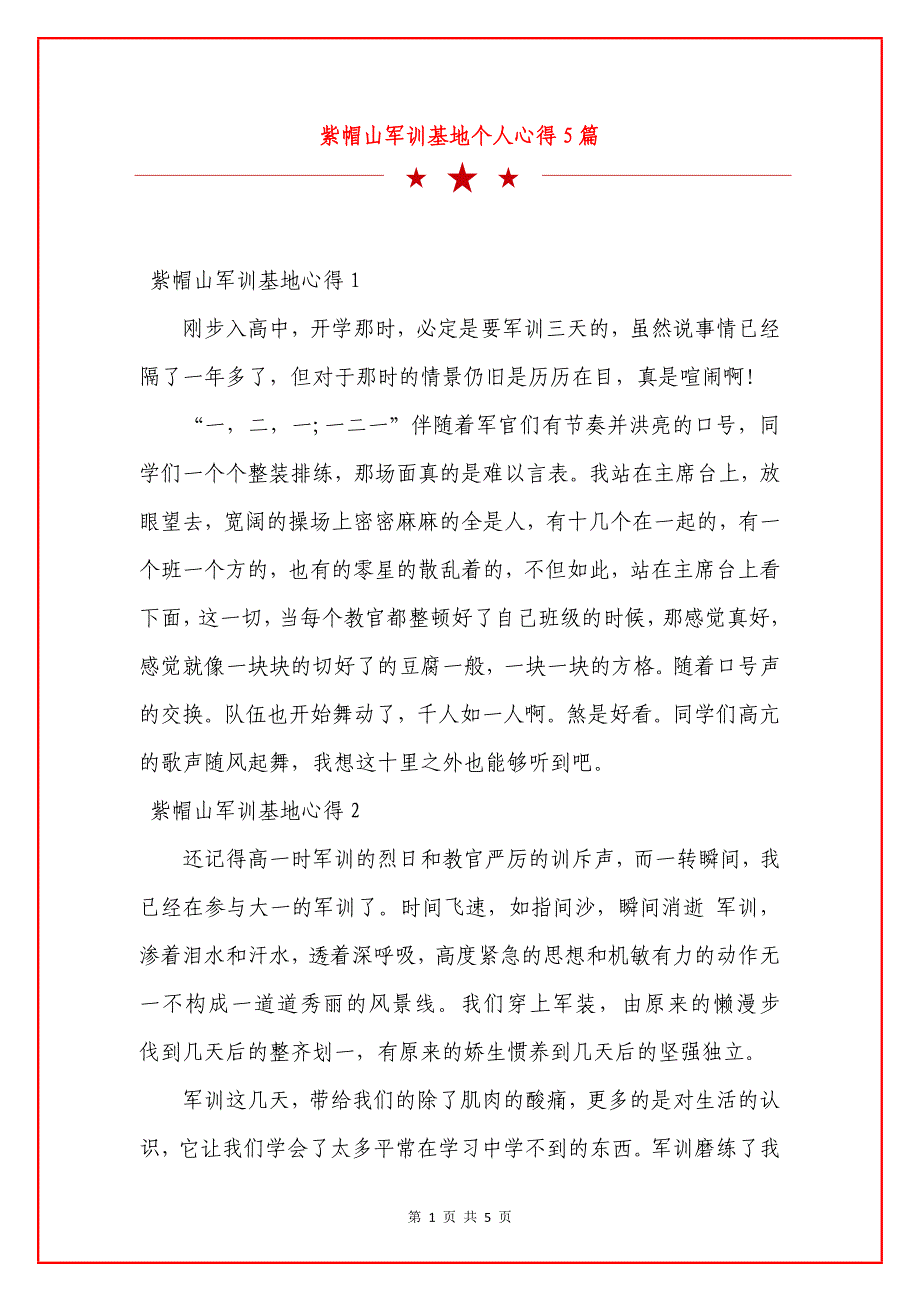 紫帽山军训基地个人心得 5 篇
紫帽山军训基地心得 1
刚步入高中，开学那时，必定是要军训三天的，虽然说事情已经
隔了一年多了，但对于那时的情景仍旧是历历在目，真是喧闹啊！
“一，二，一；一二一”伴随着军官们有节奏并洪亮的口号，同
学们一个个整装排练，那场面真的是难以言表。我站在主席台上，放
眼望去，宽阔的操场上密密麻麻的全是人，有十几个在一起的，有一
个班一个方的，也有的零星的散乱着的，不但如此，站在主席台上看
下面，这一切，当每个教官都整顿好了自己班级的时候，那感觉真好，
感觉就像一块块的切好了的豆腐一般，一块一块的方格。随着口号声
的交换。队伍也开始舞动了，千人如一人啊。煞是好看。同学们高亢
的歌声随风起舞，我想这十里之外也能够听到吧。
紫帽山军训基地心得 2
还记得高一时军训的烈日和教官严厉的训斥声，而一转瞬间，我
已经在参与大一的军训了。时间飞速，如指间沙，瞬间消逝 军训，
渗着泪水和汗水，透着深呼吸，高度紧急的思想和机敏有力的动作无
一不构成一道道秀丽的风景线。我们穿上军装，由原来的懒漫步
伐到几天后的整齐划一，有原来的娇生惯养到几天后的坚强独立。
军训这几天，带给我们的除了肌肉的酸痛，更多的是对生活的认
识，它让我们学会了太多平常在学习中学不到的东西。军训磨练了我
第 1 页 共 5 页